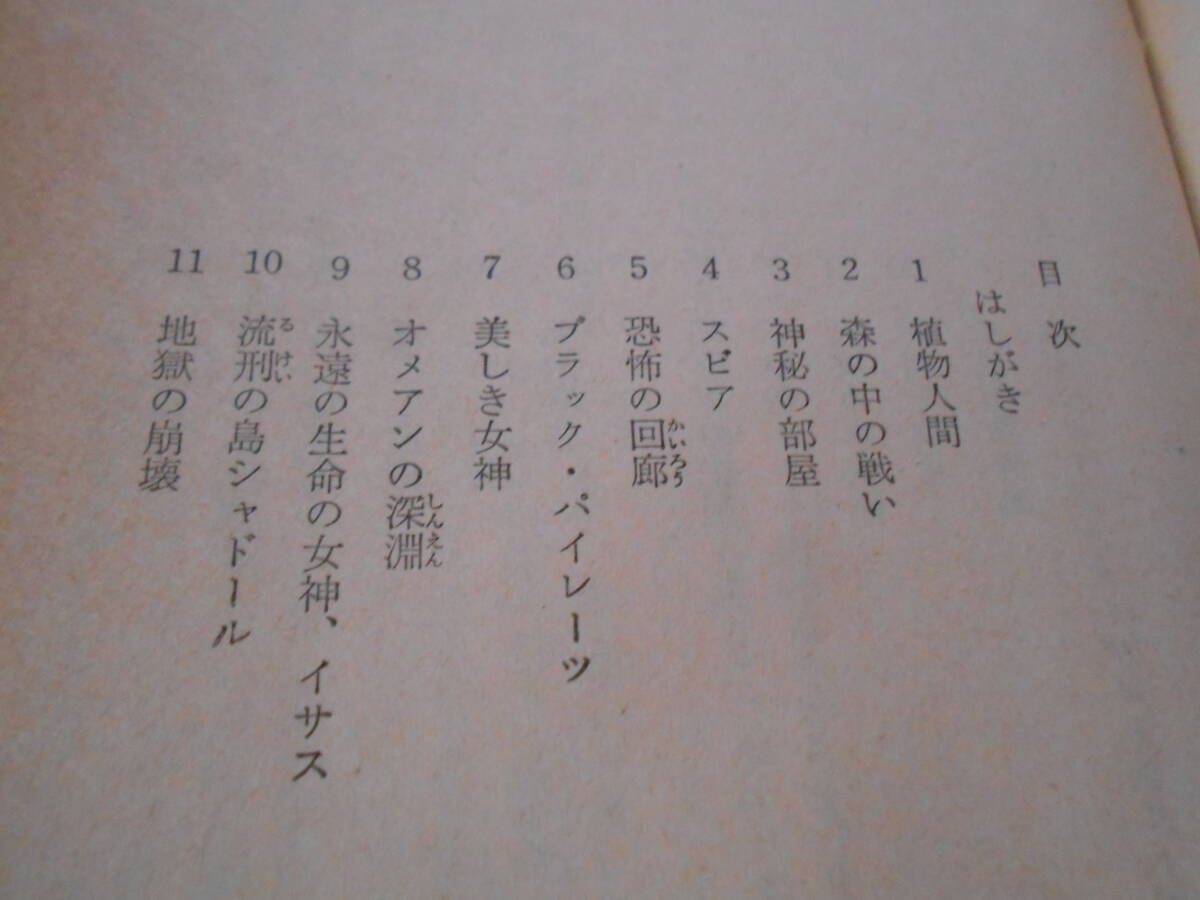 目次
はしがき
1 植物人間
2 森の中の戦い
3 神秘の部屋
4 スビア
5 恐怖の回廊
かいろう
6 ブラック・パイレーツ
7 美しき女神
8 オメアンの深淵
しんえん
9 永遠の生命の女神、イサス
10 流刑の島シャドール
るけい
11 地獄の崩壊